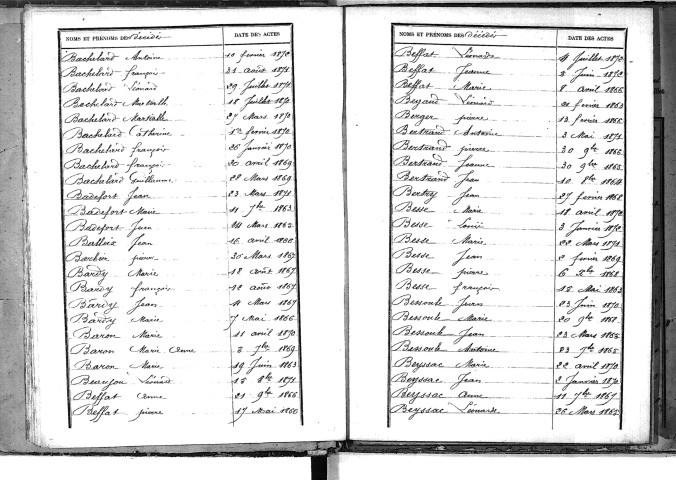 NOMS ET PRÉNOMS DES décédés DATE DES ACTES
Bachelard Antoine 10 fevrier 1870
Bachelard françois 31 août 1871
Bachelard Léonard 29 Juillet 1871
Bachelard Martialle 18 Juillet 1871
Bachelard Martialle 27 Mars 1870
Bachelard Catherine 1er fevrier 1870
Bachelard françois 26 Janvier 1870
Bachelard françois 20 avril 1869
Bachelard Guillaume 22 Mars 1869
Badefort Jean 23 Mars 1871
Badefort Marie 11 7bre 1863
Badefort Jean Mars
Jean 16 avril
pierre 30 Mars 1867
Bardy Marie 18 août 1867
Bardy françois 12 août 1867
Bardy Jean 4 Mars 1867
Bardy Marie 7 Mai 1866
Baron Marie 11 avril 1870
Baron Marie Anne 3 7bre 1869
Baron Marie 19 Juin 1863
Léonard 13 8bre 1871
Beffat Anne 21 9bre 1866
Beffat pierre 17 Mai 1866
NOMS ET PRÉNOMS DES décédés DATE DES ACTES
Beffat Léonarde 4 Juillet 1870
Beffat Jeanne 2 Juin 1870
Beffat Marie 8 avril 1866
Léonard fevrier 1863
Berger pierre 13 fevrier 1866
Bertrand Antoine 3 Mai 1871
Bertrand pierre 30 9bre 1866
Bertrand Jeanne 30 9bre 1865
Bertrand Jean 10 8bre 1864
Jean 27 fevrier
Besse Marie 18 avril 1870
Besse 3 Janvier 1870
Besse Marie 22 Mars 1871
Besse Jean 2 fevrier 1869
Besse pierre 6 Xbre 1868
Besse françois 13 Mai 1863
Bessoule Jean 23 Juin 1870
Bessoule Marie 20 9bre 1868
Bessoule Jean 23 Mars 1865
Bessoule Antoine 23 7bre 1865
Beyssac Marie 22 avril 1870
Beyssac Jean 2 Janvier 1870
Beyssac Anne 11 7bre 1867
Beyssac Léonarde 26 Mars 1865